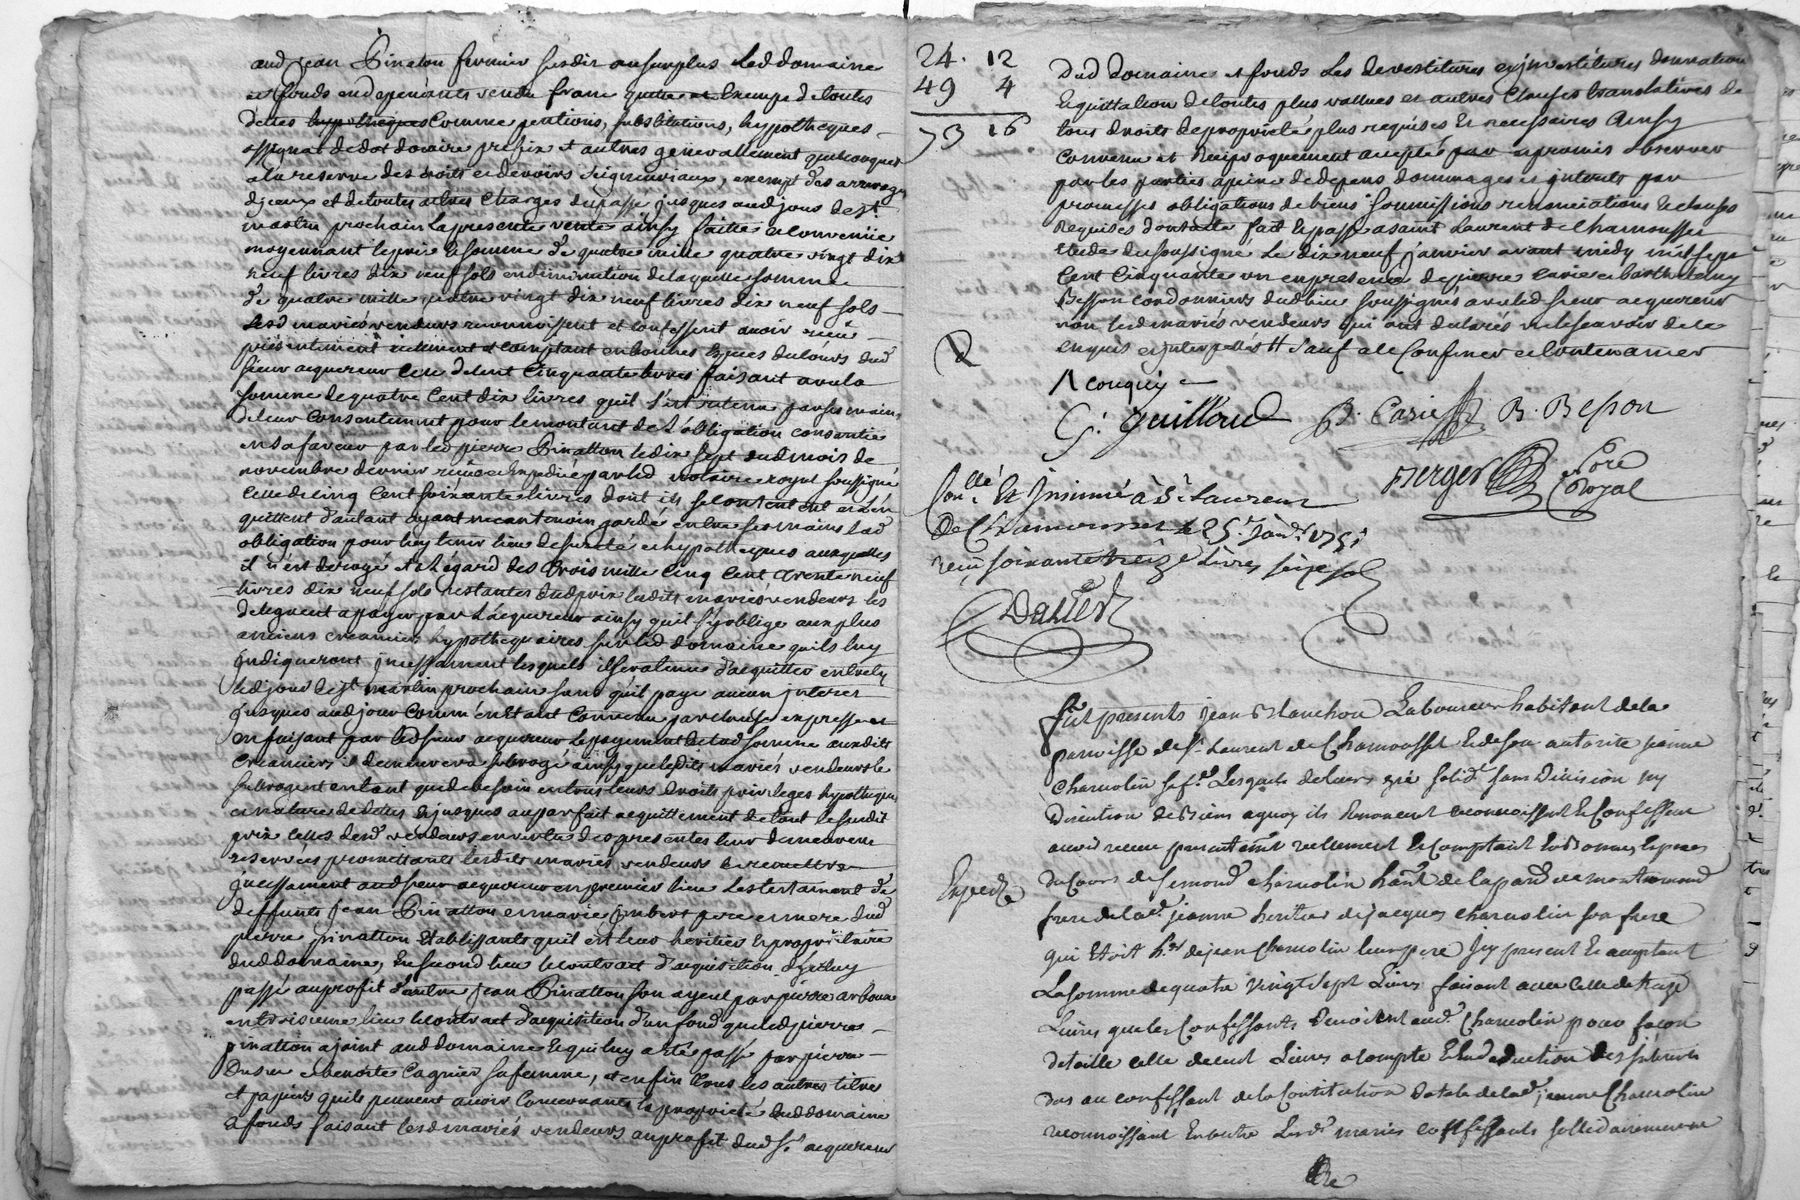 aud jean Pinaton fermier susdit au surplus led domaine
et fonds en dependants vendu franc quitte et exempt de toutes
dettes hypotheques comme pentions, substitutions, hypotheques
assignat de dot doüaire prefix et autres generallement quelconques
a la reserve des droits et devoirs seigneuriaux, exempt des arrerages
diceux et de toutes autres charges du passé jusques aud jour de st
martin prochain La presente vente ainsy faitte et convenüe
moyennant le prix et somme de quatre mille quatre vingt dix
neuf livres dix neuf sols en diminution de laquelle somme
de quatre mille quatre vingt dix neuf livres dix neuf sols
lesd mariés vendeurs reconnoissent et confessent avoir reçû
presentement réellement et comptant en bonnes especes du cours dud
sieur acquereur celle de cent cinquante livres faisant avec la
somme de quatre cent dix livres quil s'est retenu par ses mains
de leur consentement pour le montant de l'obligation consentie
en sa faveur par led pierre Pinatton le dix sept dud mois de
novembre dernier reçüe et expediée par led notaire royal soussigné
celle de cinq cent soixante livres dont ils se contentent et l'en
quittent d'autant ayant neantmoin gardé entre ses mains lad
obligation pour luy tenir lieu de sureté et hypotheques auxquelles
il n'est derogé et a l'égard des trois mille cinq cent trente neuf
livres dix neuf sols restantes dud prix lesdits mariés vendeurs les
deleguent a payer par l'acquereur ainsy qu'il s'y oblige aux plus
anciens creanciers hypothequaires sur led domaine qu'ils luy
indiqueront incessament lesquels il sera tenu d'acquitter entre cy
led jour de st martin prochain sans qu'il paye aucun interet
jusques aud jour comm'en étant convenu par clause expresse et
en faisant par led sieur acquereur le payement de lad somme auxdits
creanciers il demeurera subrogé ainsy que lesdits mariés vendeurs le
subrogent en tant que de besoin en tous leurs droits privileges hypotheques
et nature de dettes et jusques au parfait acquittement de tout le susdit
prix celles desd vendeurs en vertu des presentes leur demeurent
reservées promettants lesdits mariés vendeurs de remettre
incessament aud sieur acquereur en premier lieu les testaments de
deffunts jean Pinatton et marie jmbert pere et mere dud
pierre pinatton etablissants qu'il est leur heritier et proprietaire
dud domaine, en second lieu le contract d'acquisition d'iceluy
passé au profit d'autre jean Pinatton son ayeul par pierre
en troisieme lieu le contract d'acquisition d'un fond que led pierre
pinatton a joint aud domaine et qui luy a été passé par pierre
et benoite Cagnier sa femme, et enfin tous les autres titres
et papiers qu'ils peuvent avoir concernants la proprieté dud domaine
et fonds faisant lesd mariés vendeurs au profit dud sr acquereur
24. 12
49 4
73 16
dud domaine et fonds les devestitures et jnvestitures donnation
et quittation de toutes plus vallues et autres clauses translatives de
tous droits de proprieté plus requises et necessaires Ainsy
convenu et reciproquement accepté par et promis observer
par les parties a peine de depens, dommages et jnterets par
promesses obligations de biens soumissions renonciations et clauses
requises dont acte fait et passé a saint Laurent de Chamousset
etude du soussigné Le dix neuf janvier avant midy mil sept
cent cinquante un en presence de pierre Carie et barthelemy
Besson cordonniers dud lieu soussignés avec led sieur acquereur
non lesd mariés vendeurs qui ont declarés ne le scavoir de ce
enquis et interpellés # sauf a le confiner et contenancer
Acenquis
G. Guillaud P. Carie B. Besson
Berger Nore
Royal
Conllé Et Insinué à St Laurent
De Chamousset le 25e Janvr 1751
reçu soixante treize Livres seize sols
Dalier
Expedie
Fut presents jean Blanchon Laboureur habitant de la
parroisse de St Laurent de Chamousset et de son autorite jeanne
Charvolin sa fe Lesquels de leurs gré solidt sans Division ny
Discution de Biens a quoy ils renoncent reconnoissent et Confessent
avoir receu presentemt reellement et Comptant en Bonnes Especes
du Cours de Simond Charvolin hant de la parsse de montromand
frere de lad jeanne heritier de jacques Charvolin son frere
qui Etoit her de jean Charvolin leur pere Icy present et acceptant
La somme de quatre vingt sept Livres faisant avec Celle de treize
Livres que les Confessants Devoient aud Charvolin pour façon
de toille celle de cent Livres a compte et en deduction des interets
dus au confessant de la Constitution Dotale de lad jeanne Charvolin
reconnoissant En outre Lesd mariés Confessants sollidairement